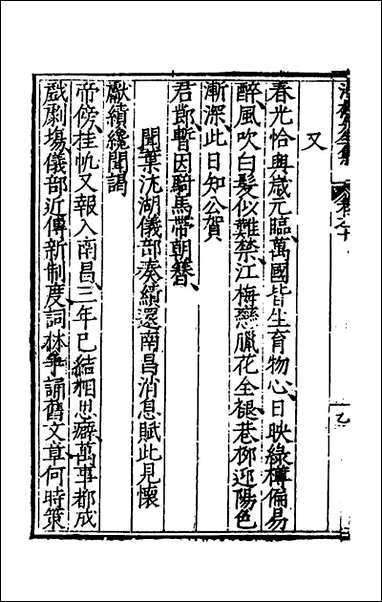 又
春光恰與歲元臨萬國皆生育物心日映綠樽偏易
醉風吹白髮似難禁江梅戀臘花全褪巷柳迎陽色
漸深此日知公賀
君郎暫因騎馬帶朝簪
聞葉沈湖儀部奏績還南昌消息賦此見懷
獻績纔聞謁
帝傍挂帆又報入南昌三年已結相思癖萬事都成
戲劇場儀部近傳新制度詞林爭誦舊文章何時策